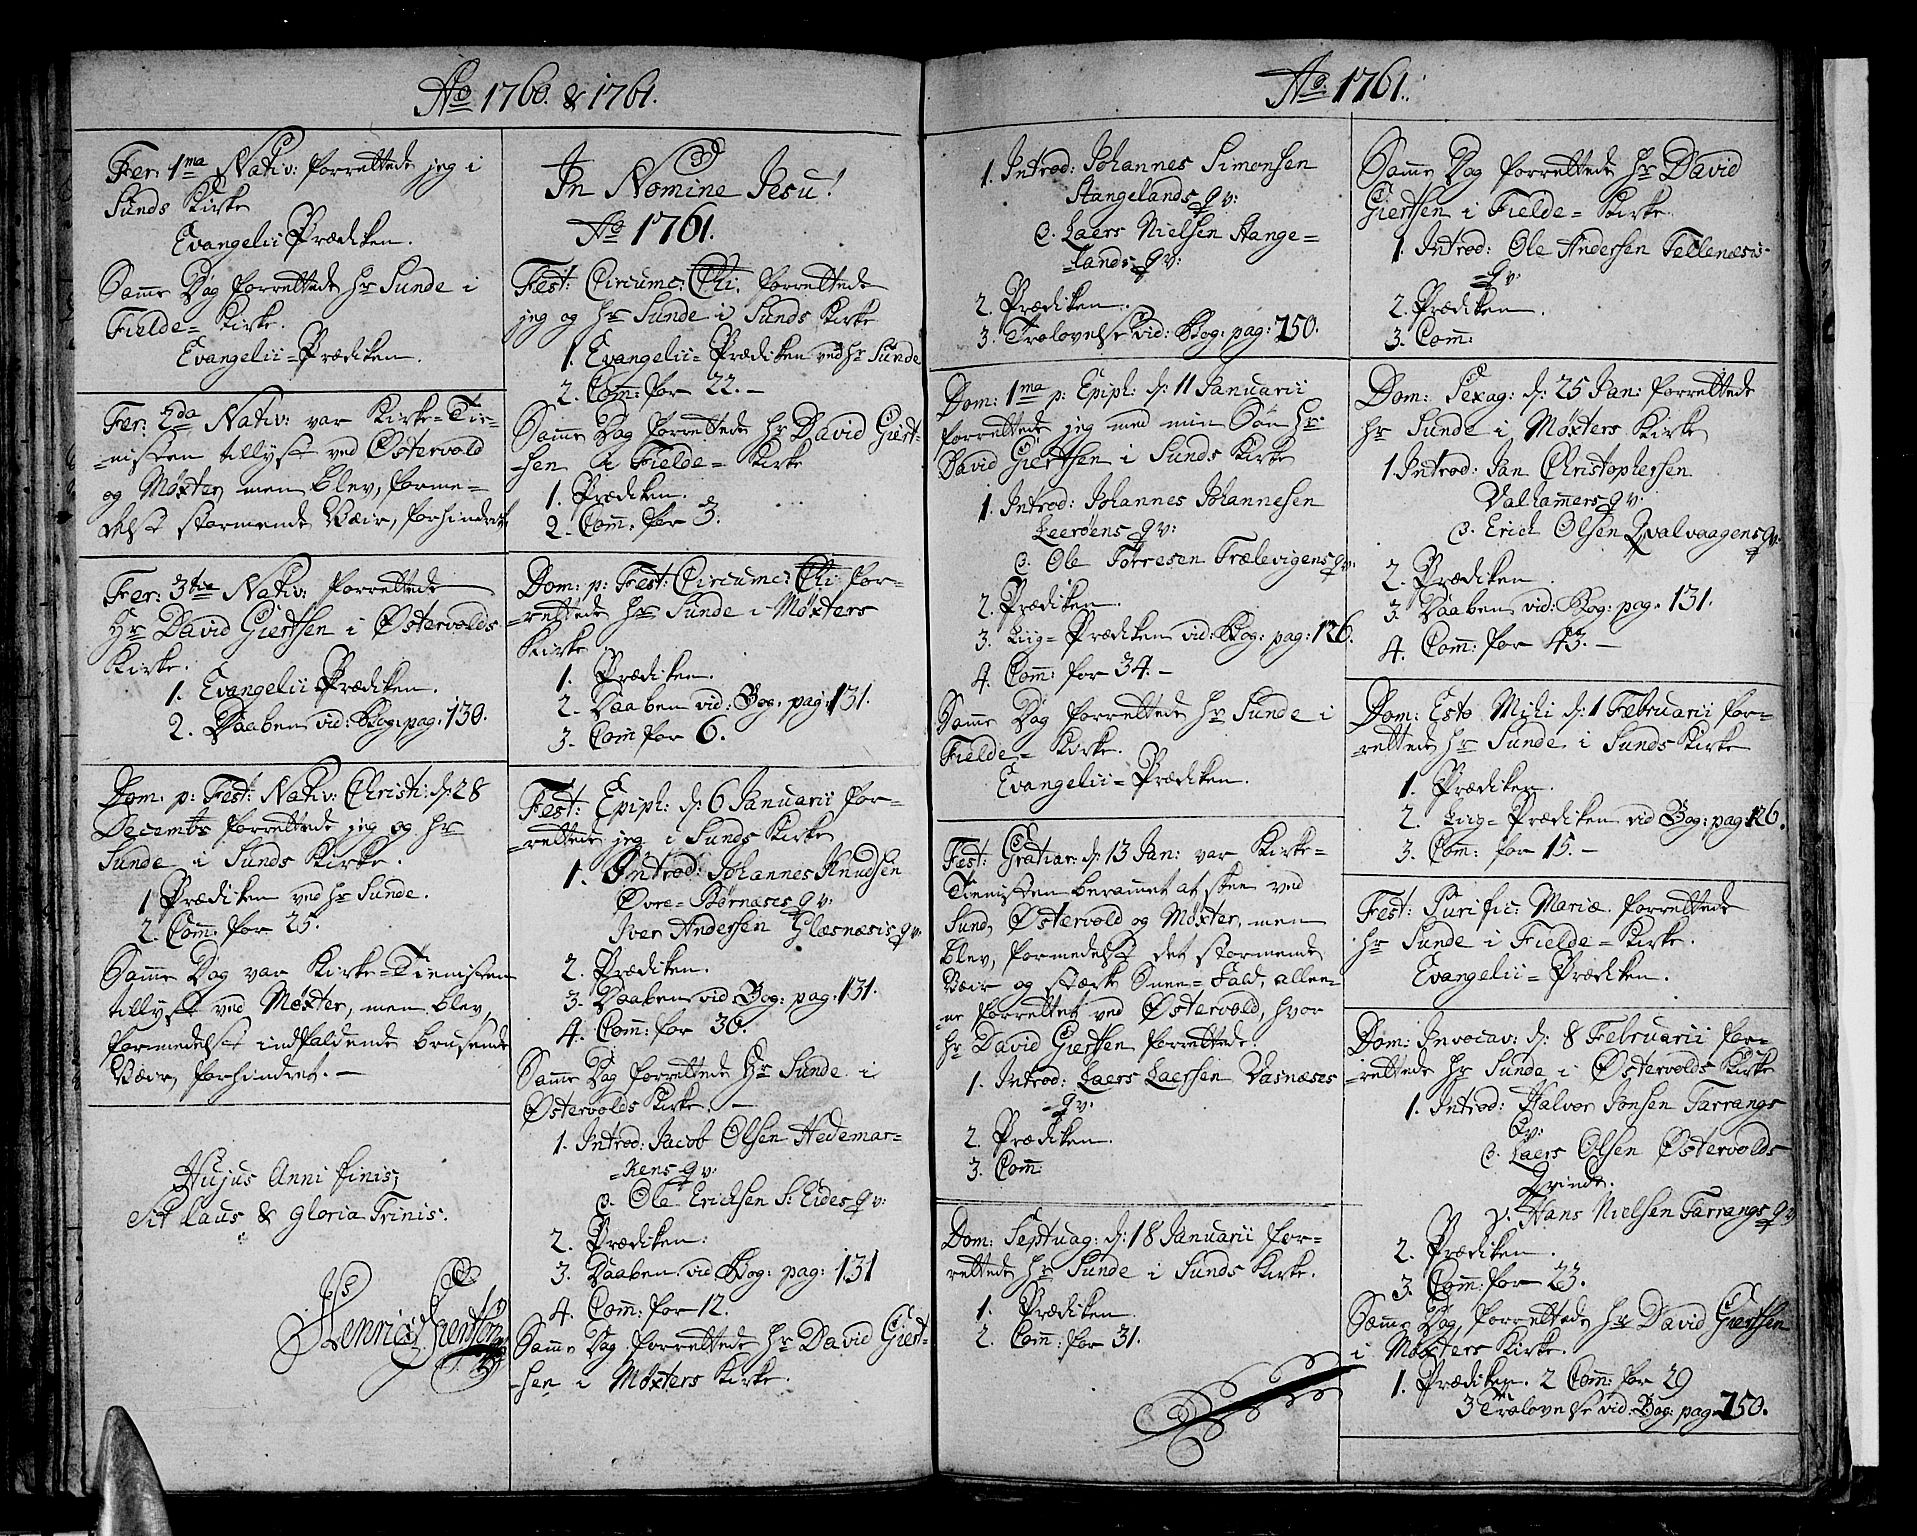 Ao 1760. & 1761.
Fer: 1ma Nativ: forrettede jeg i
Sunds Kirke
Evangelii Prædiken.
Samme Dag forrettede Hr Sunde i
Fielde= Kirke.
Evangelii=Prædiken.
Fer: 2da Nativ: var Kirke=Tie-
-nisten tillyst ved Østervold
og Møxter, men blev, forme-
-delst stormende Væir, forhindret
Fer: 3tia Nativ: forrettede
Hr David Giertsen i Østervolds
Kirke.
1. Evangelii Prædiken.
2. Daaben vid: Bog: pag: 130.
Dom: p: Fest: Nativ: Christi d: 28
Decembr forrettede jeg og Hr
Sunde i Sunds Kirke.
1 Prædiken ved Hr Sunde.
2. Com: for 25.
Samme Dag var Kirke=Tienisten
tillyst ved Møxter, men blev,
formedelst indfaldende brusende
Væir, forhindret. —
Hujus Anni finis;
Sit laus & gloria Trinis.
Henric Giertsen
In Nomine Jesu!
Ao 1761.
Fest: Circumc: Chi. forrettede
jeg og Hr Sunde i Sunds Kirke
1. Evangelii= Prædiken ved Hr Sunde
2. Com: for 22. —
Samme Dag forrettede Hr David Giert-
-sen i Fielde= Kirke
1. Prædiken.
2. Com: for 3.
Dom: p: Fest: Circumc: Chi for-
-rettede Hr Sunde i Møxters
Kirke
1. Prædiken.
2. Daaben vid: Bog: pag: 131.
3. Com for 6.
Fest: Epiph: d: 6 Januarii for-
-rettede jeg i Sunds Kirke
1. Introd: Johannes Knudsen
Øvre=Børnæses qv:
Iver Andersen Glæsnæsis qv:
2. Prædiken.
3. Daaben vid Bog: pag: 131.
4. Com: for 30.
Samme Dag forrettede Hr Sunde i
Østervolds Kirke. —
1. Introd: Jacob Olsen Hedemar-
-kens qv:
β. Ole Ericksen S: Eides qv:
2. Prædiken:
3. Daaben vid Bog: pag: 131
4. Com: for 12.
Samme Dag forrettede Hr David Giert-
-sen i Møxters Kirke.
Ao 1761.
1. Introd: Johannes Simonsen
Stangelands qv:
β. Laers Nielsen Stange-
-lands qv:
2. Prædiken.
3. Trolovelse vid: Bog: pag: 150.
Dom: 1ma p: Epiph: d: 11 Januarii
forrettede jeg med min Søn Hr
David Giertsen i Sunds Kirke
1. Introd: Johannes Johannesen
Leerøens qv:
β. Ole Torresen Trælevigens qv:
2. Prædiken.
3. Liig= Prædiken vid: Bog: pag: 126.
4. Com: for 34. —
Samme Dag forrettede Hr Sunde i
Fielde= Kirke.
Evangelii= Prædiken.
Fest: Gratiar: d: 13 Jan: var Kirke-
Tienisten berammet at skee ved
Sund, Østervold og Møxter, men
blev, formedelst det stormende
Væir og stærke Snee=Fald, allee-
-ne forrettet ved Østervold, hvor
Hr David Giertsen forrettede.
1. Introd: Laers Laerssen Vasnæses
qv:
2. Prædiken.
3. Com:
Dom: Septuag: d: 18 Januarii for-
rettede Hr Sunde i Sunds Kirke.
1. Prædiken
2. Com: for 31.
Samme Dag forrettede Hr David
Giertsen i Fielde= Kirke.
1. Introd: Ole Andersen Tellenæsis
qv:
2. Prædiken.
3. Com:
Dom: Sexag: d: 25 Jan: forrettede
Hr Sunde i Møxters Kirke
1 Introd: Jan Christophersen
Valhammers qv:
β. Erich Olsen Qvalvaagens qv:
2. Prædiken
3. Daaben vid: Bog: pag: 131.
4. Com: for 43. —
Dom: Esto Mihi d: 1 Februarii for-
-rettede Hr Sunde i Sunds Kirke
1. Prædiken.
2. Liig= Prædiken vid Bog: pag 126.
3. Com: for 15. —
Fest: Purific: Mariæ forrettede
Hr Sunde i Fielde= Kirke.
Evangelii= Prædiken.
Dom: Invocav: d: 8 Februarii for-
-rettede Hr Sunde i Østervolds Kirke
1. Introd: Halvor Jonsen Tarrangs
Qv:
β. Laers Olsen Østervolds
Qvinde.
γ. Hans Nielsen Tarrangs qv
2. Prædiken.
3. Com: for 23.
Samme Dag, forrettede Hr David Giertsen
i Møxters Kirke.
1. Prædiken. 2 Com: for 29
3 Trolovelse vid: Bog: pag 150.